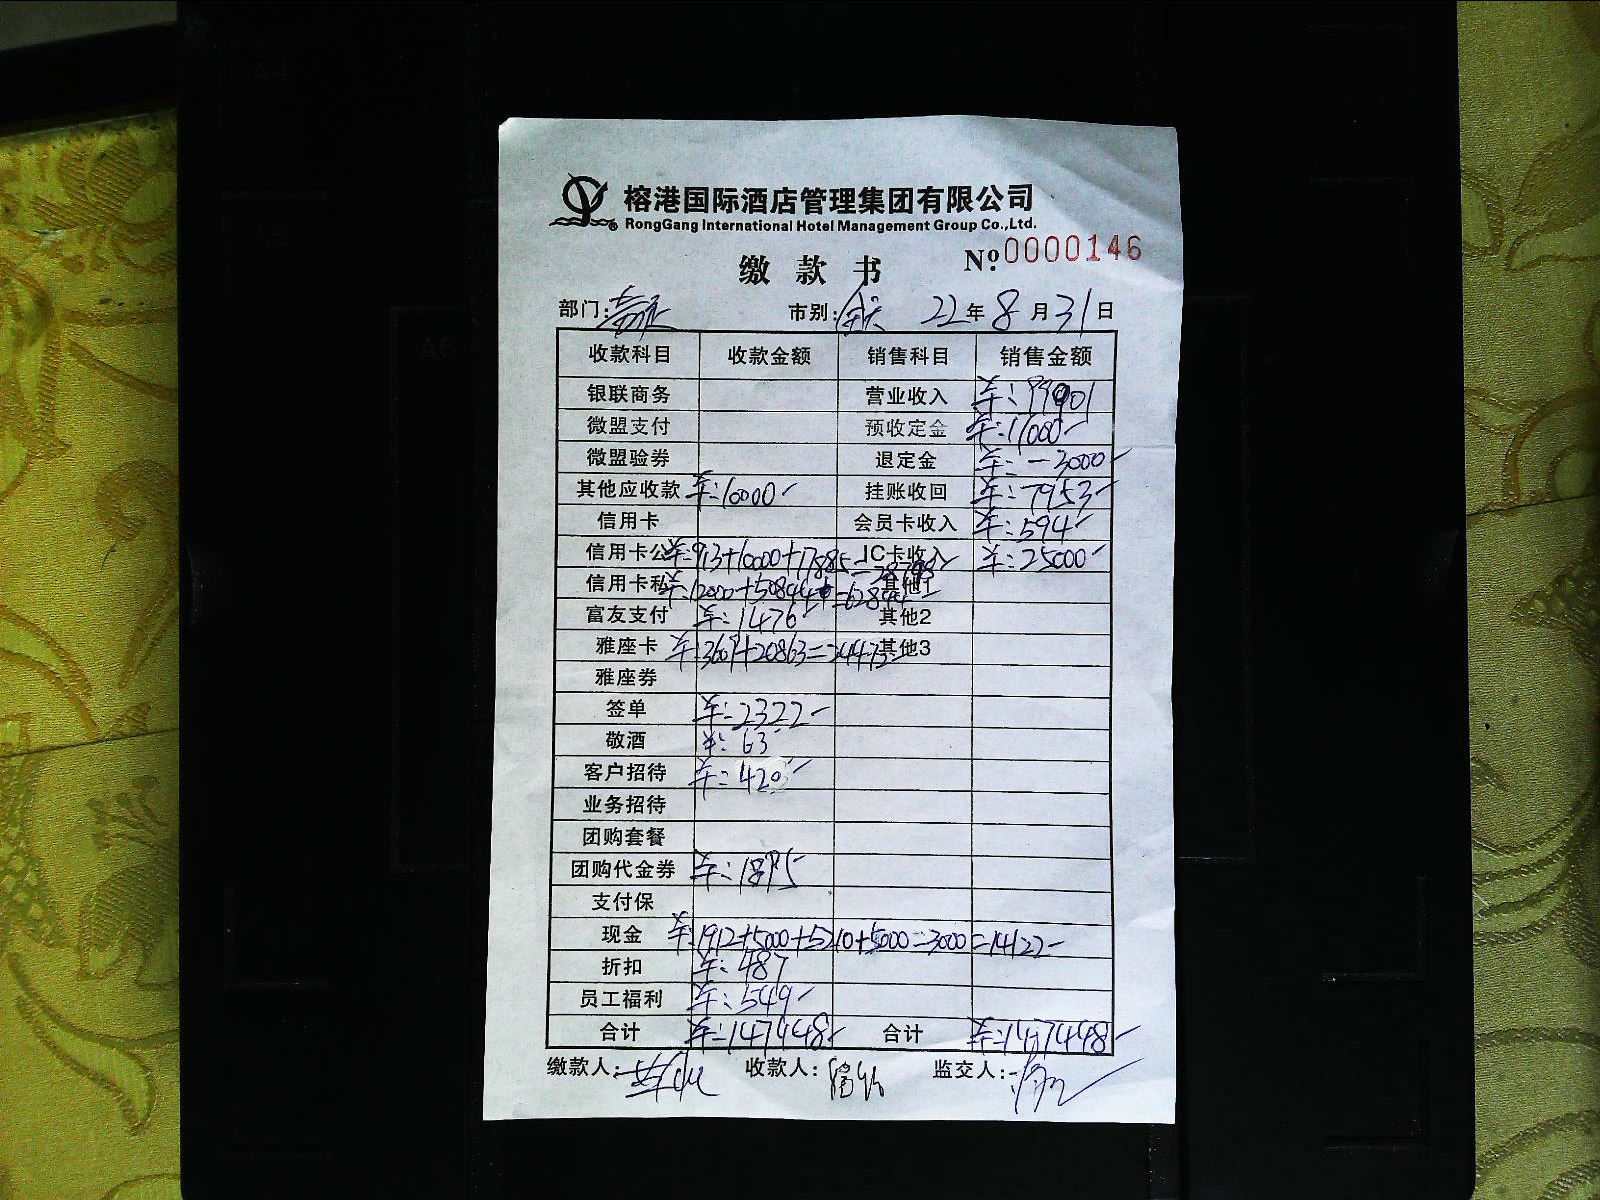 榕港国际酒店管理集团有限公司
RongGang International Hotel Management Group Co.,Ltd.
缴款书 Nº 0000146
部门: 市别:全天 22年8月31日
收款科目 收款金额 销售科目 销售金额
银联商务 营业收入
微盟支付 预收定金 卡:11000
微盟验券 退定金 卡:-3000
其他应收款 卡:10000 挂账收回 卡:7953
信用卡 会员卡收入 卡:594
信用卡公 卡:913+10000+17885=28798 IC卡收入 卡:25000
信用卡私 其他1
富友支付 卡:1476 其他2
雅座卡 其他3
雅座券
签单 卡:2322
敬酒 卡:63
客户招待 卡:420
业务招待
团购套餐
团购代金券
支付保
现金 卡:1912+5000+5210+5000-3000=14122
折扣 卡:487
员工福利 卡:549
合计 合计
缴款人: 收款人: 监交人: